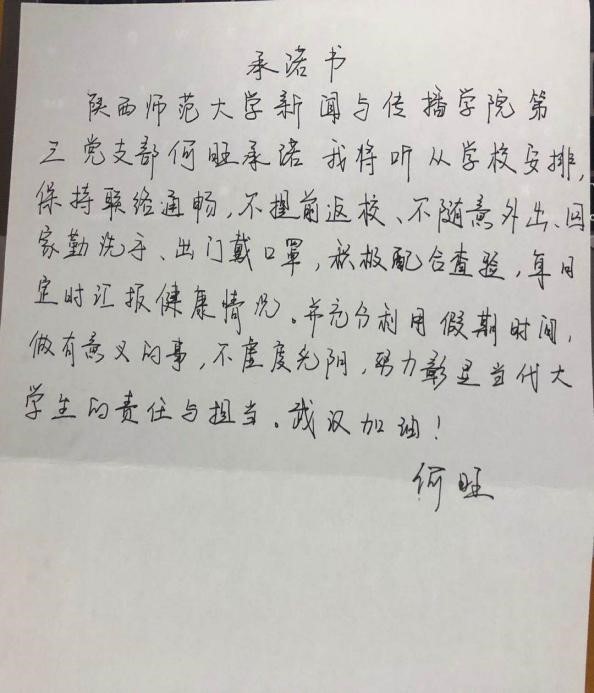 承诺书
陕西师范大学新闻与传播学院第
三党支部何旺承诺我将听从学校安排,
保持联络通畅,不提前返校、不随意外出、回
家勤洗手、出门戴口罩,积极配合查验,每日
定时汇报健康情况。并充分利用假期时间,
做有意义的事,不虚度光阴,努力彰显当代大
学生的责任与担当。武汉加油!
何旺